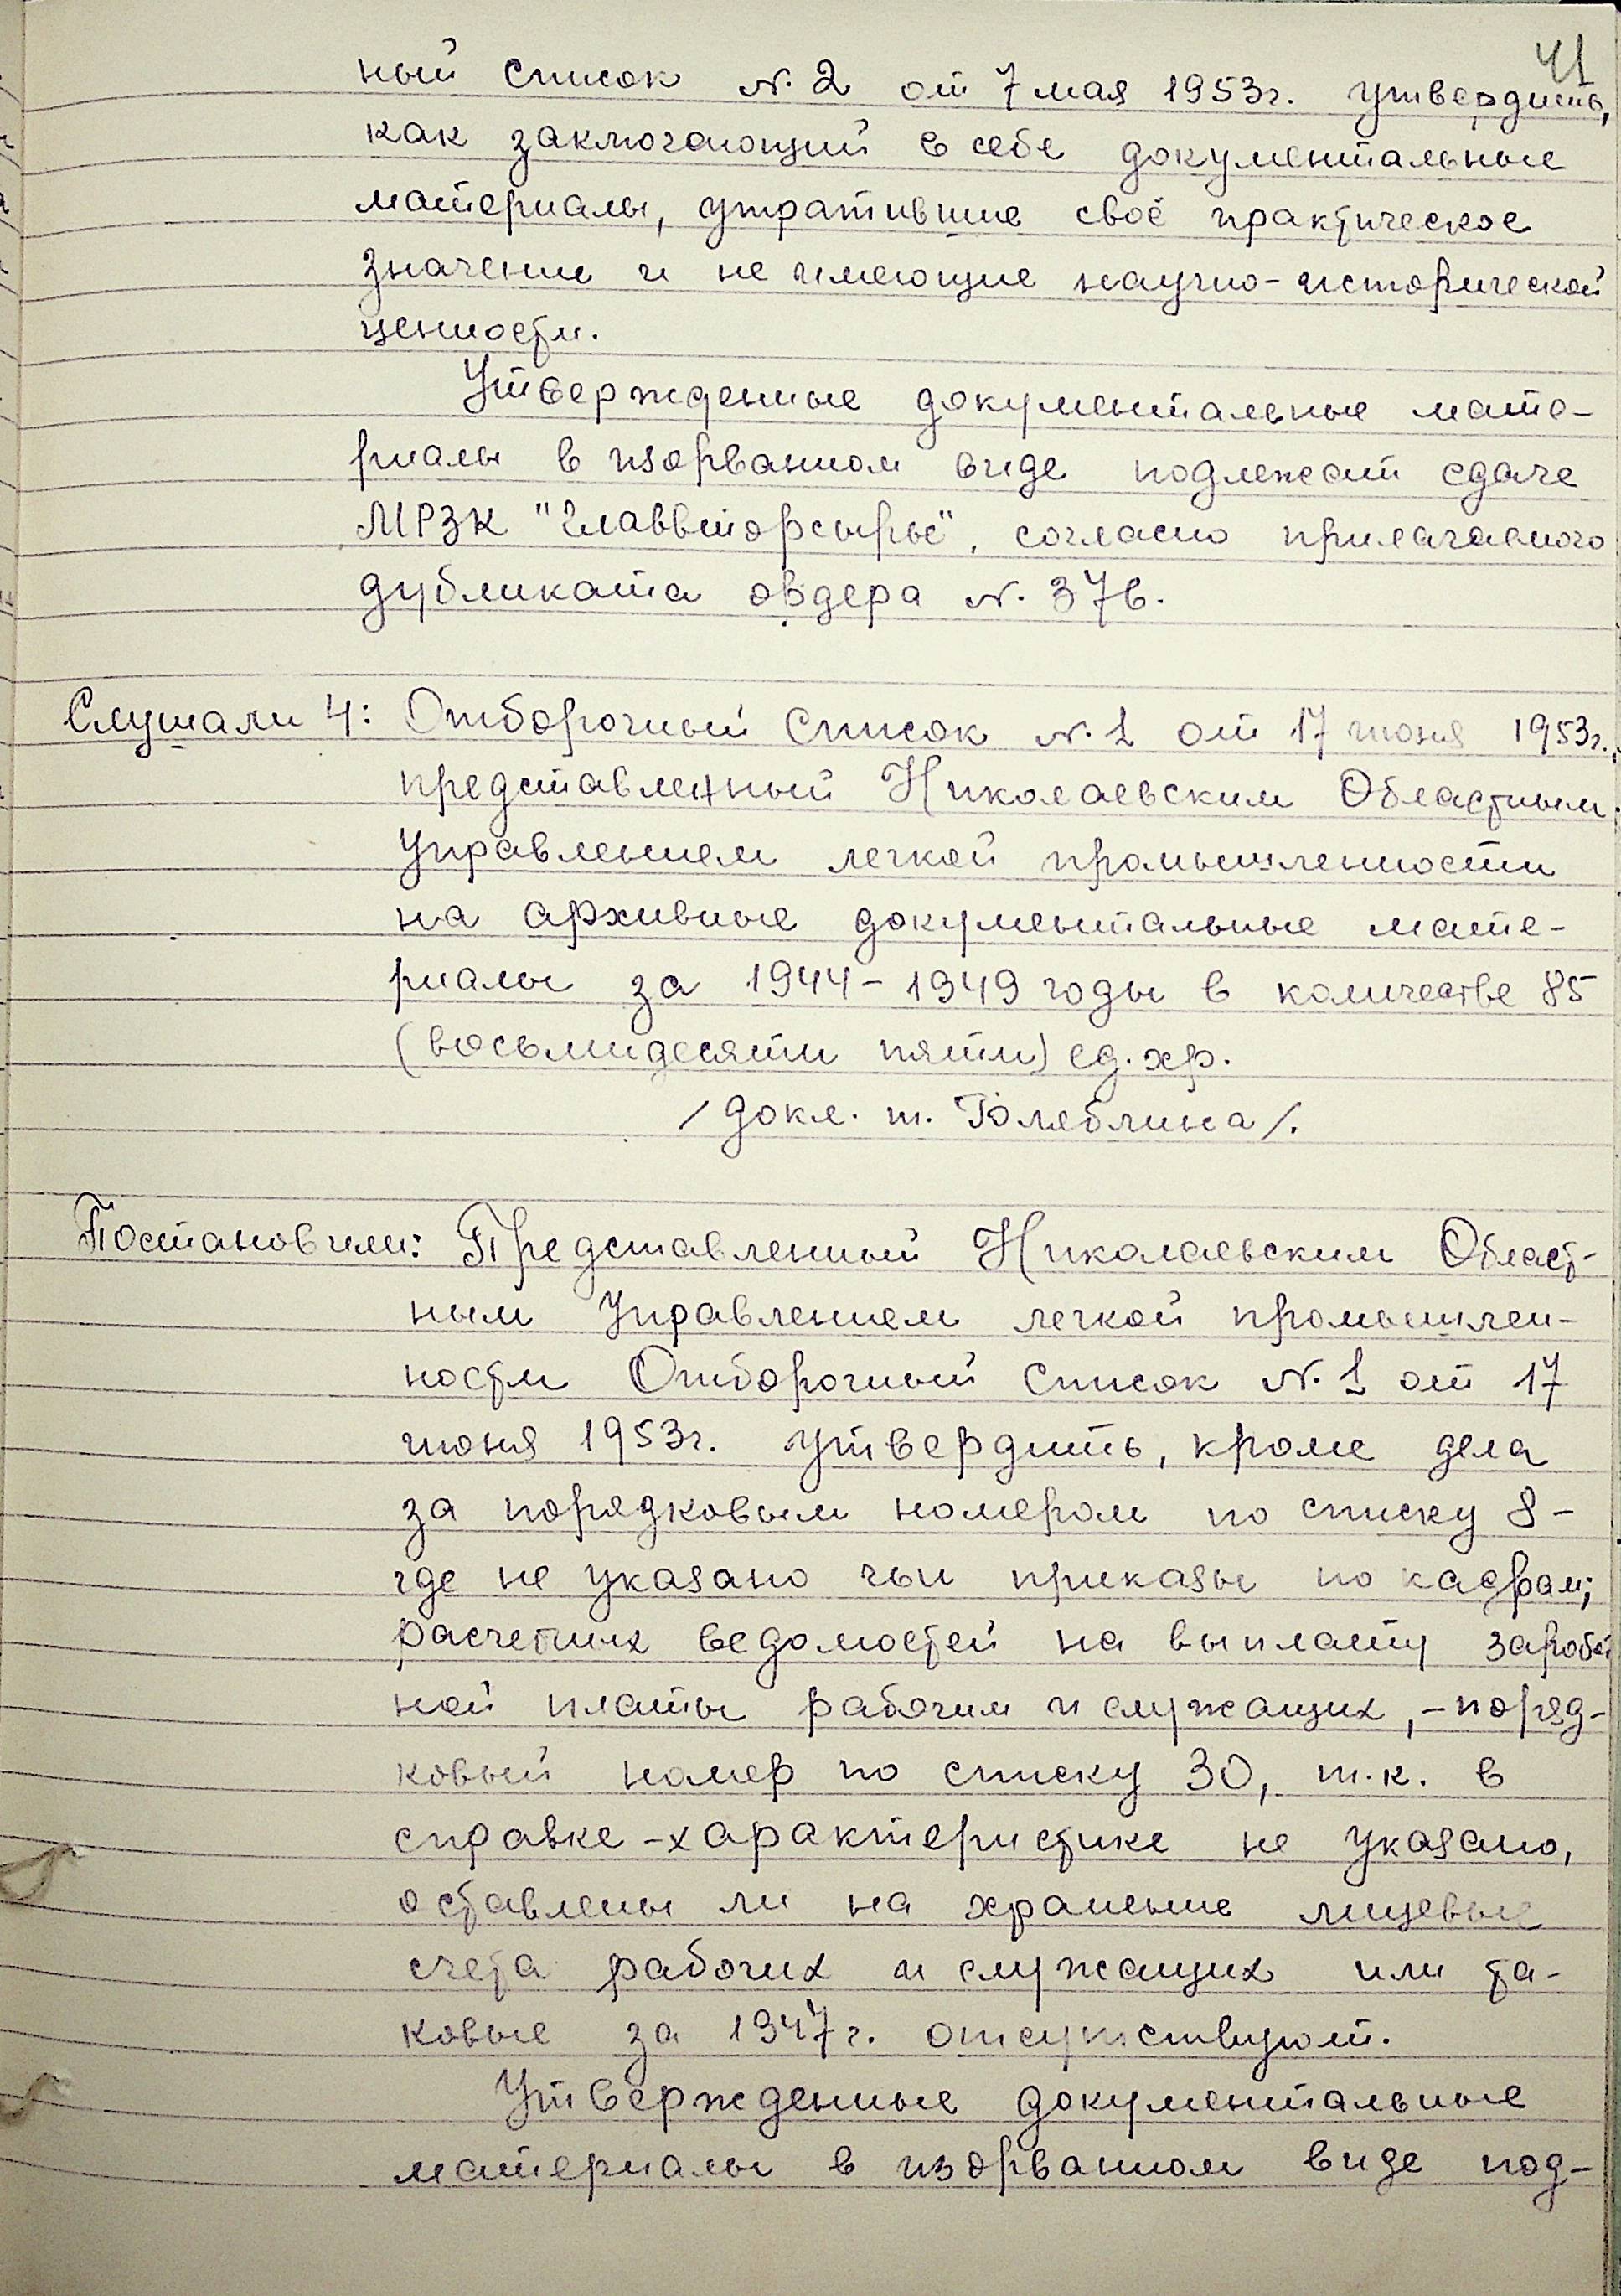 41
ный список №. 2 от 7 мая 1953г. утвердить,
как заключающий в себе документальные
материалы, утратившие своё практическое
значение и не имеющие научно-исторической
ценности.
Утвержденные документальные мате-
риалы в изорванном виде подлежат сдаче
МРЗК "Главвторсырье", согласно прилагаемого
дубликата ордера №. 376.
Слушали 4: Отборочный список №. 1 от 17 июня 1953г.,
представленный Николаевским Областным
Управлением легкой промышленности
на архивные документальные мате-
риалы за 1944-1949 годы в количестве 85
(восьмидесяти пяти) ед. хр.
/докл. т. /.
Постановили: Представленный Николаевским Област-
ным Управлением легкой промышлен-
ности Отборочный список №. 1 от 17
июня 1953г. утвердить, кроме дела
за порядковым номером по списку 8-
где не указано чьи приказы по кадрам;
расчетных ведомостей на выплату заработ
ной платы рабочим и служащих,-поряд-
ковый номер по списку 30, т.к. в
справке-характеристике не указано,
оставлены ли на хранение лицевые
счета рабочих и служащих или та-
ковые за 1947г. отсутствуют.
Утвержденные документальные
материалы в изорванном виде под-